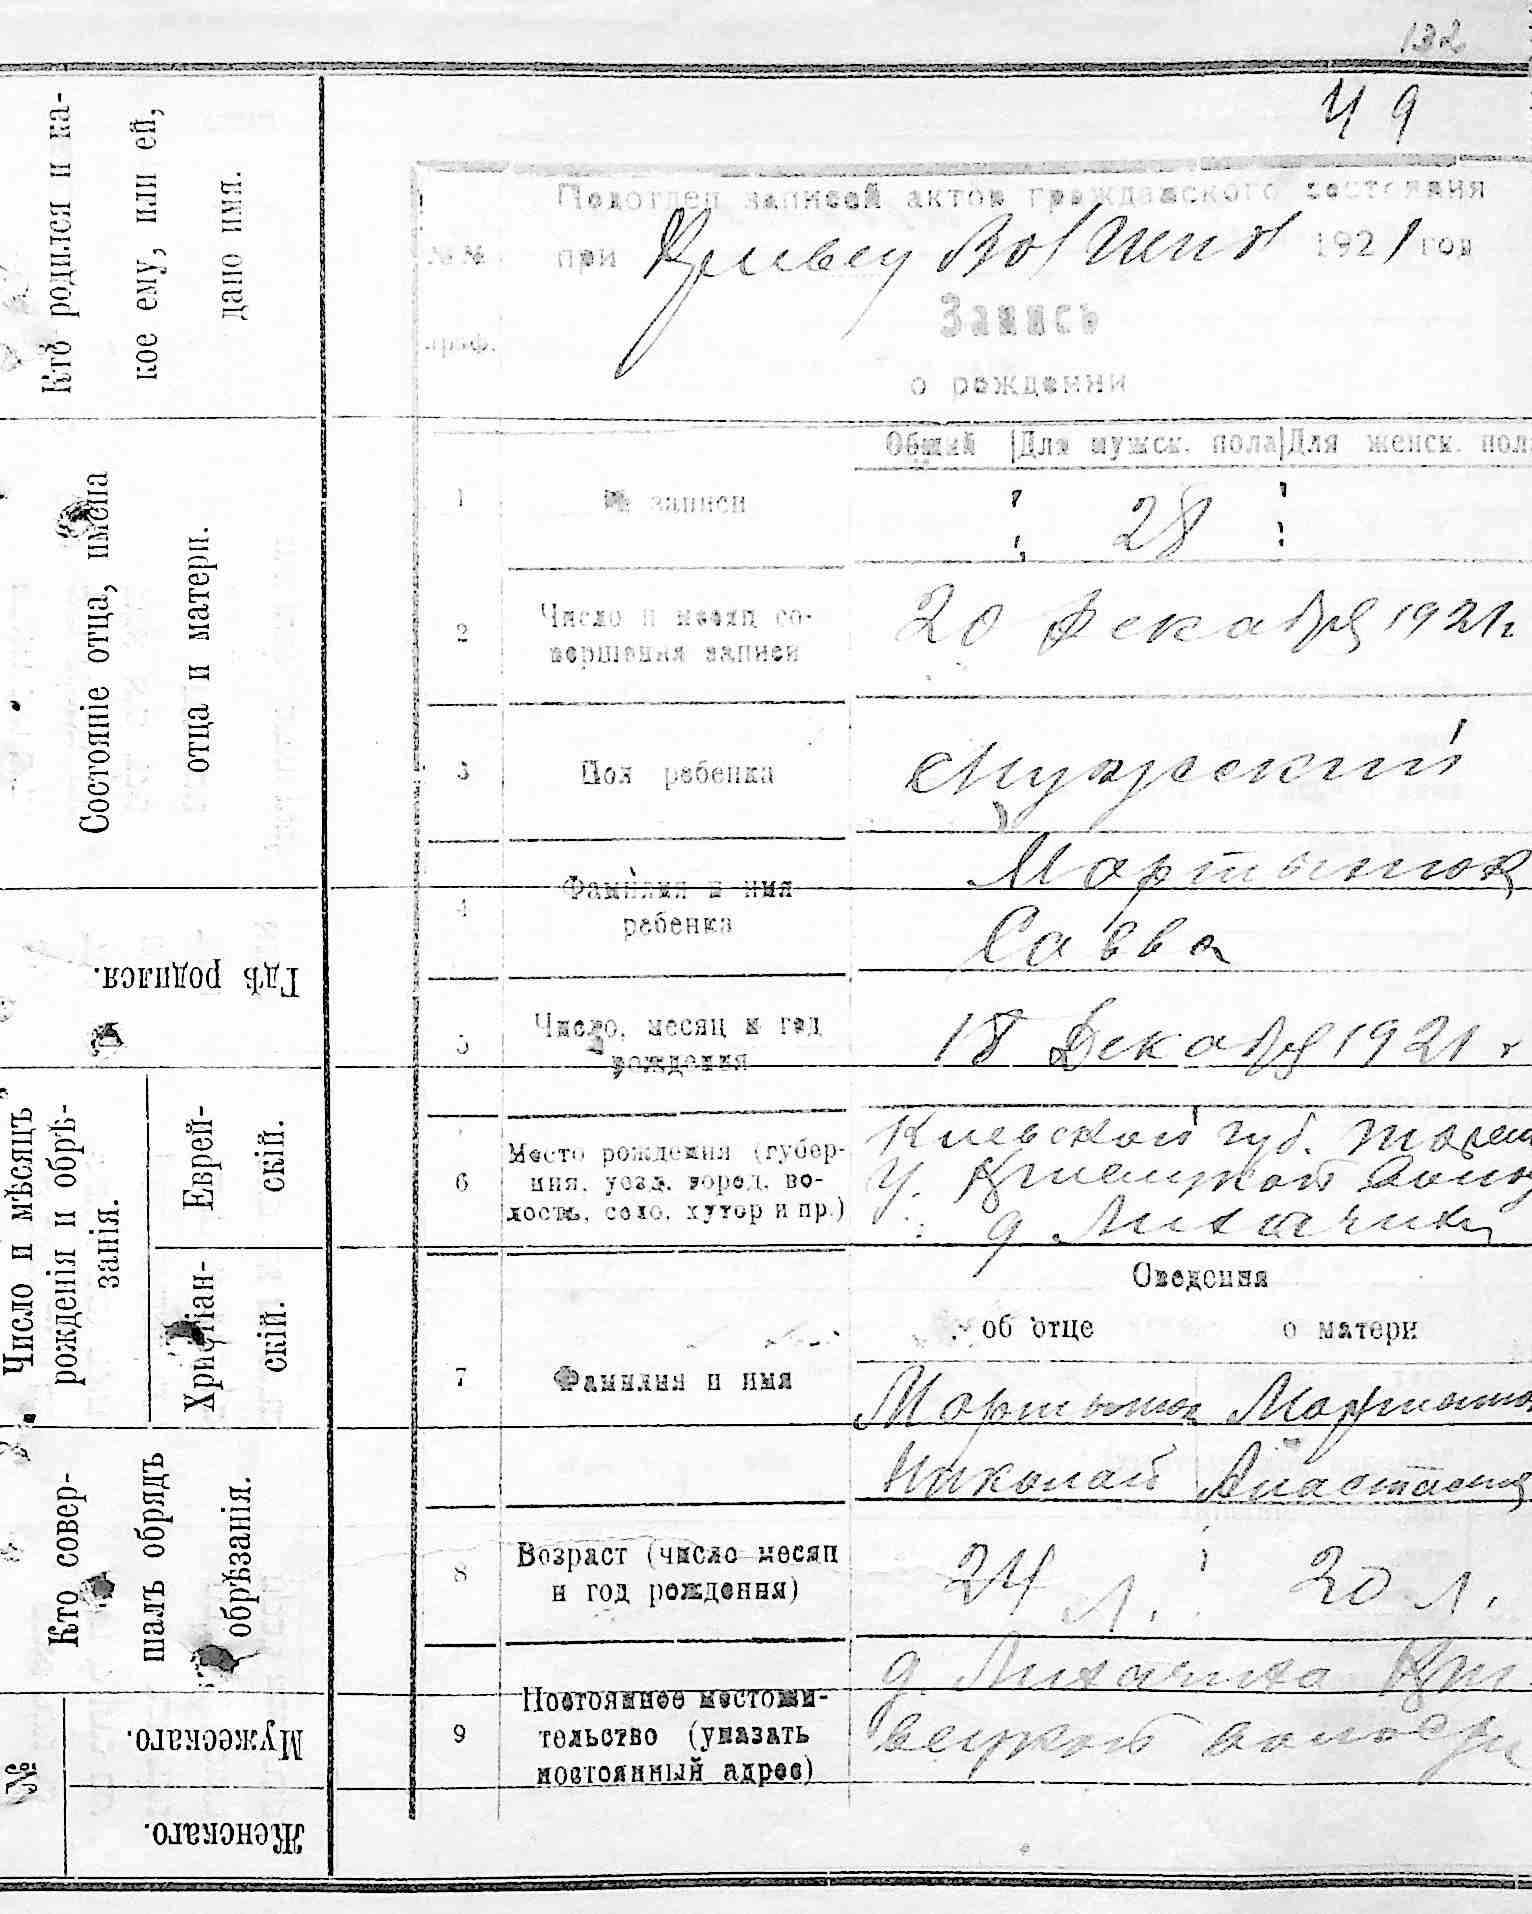 132
49
Кто родился и ка-
кое ему, или ей,
дано имя.
Состояніе отца, имена
отца и матери.
Гдѣ родился.
Число и мѣсяцъ
рожденія и обрѣ-
занія.
Еврей-
скій.
Христіан-
скій.
Кто совер-
шалъ обрядъ
обрѣзанія.
№
Мужескаго.
Женскаго.
Подотдел записей актов гражданского состояния
№№ при 1921 год
Запись
граф.
о рождении
Общий Для мужск. пола Для женск. пола
1 № записи 28
2 Число и месяц со-
вершения записи
20 Декабря 1921г
3 Пол ребенка Мужеский
4 Фамилия и имя
ребенка
Мартынюк
Савва
5 Число, месяц и год
рождения
18 Декабря 1921 г
6 Место рождения (губер-
ния, уезд, город, во-
лость, село, хутор и пр.)
Киевской губ.
у.
д Лихачиха
Сведения
об отце о матери
7 Фамилия и имя
Мартынюк Мартынюк
Николай Анастасия
8 Возраст (число месяц
и год рождения)
24 л. 20 л.
9 Постоянное местожи-
тельство (указать
постоянный адрес)
д. Лихачиха Кри-
вецкой волости